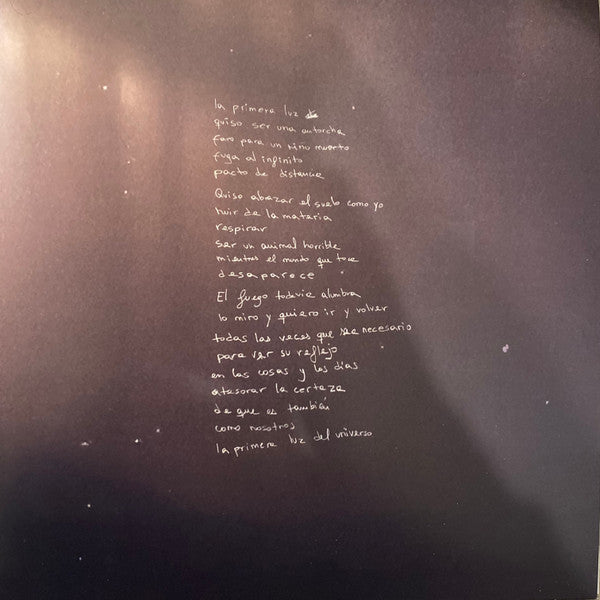 la primera luz
quiso ser una antorcha
faro para un niño muerto
fuga al infinito
pacto de distancia
Quiso abrazar el suelo como yo
huir de la materia
respirar
ser un animal horrible
mientras el mundo que toca
desaparece
El fuego todavía alumbra
lo miro y quiero ir y volver
todas las veces que sea necesario
para ver su reflejo
en las cosas y los días
atesorar la certeza
de que es también
como nosotros
la primera luz del universo